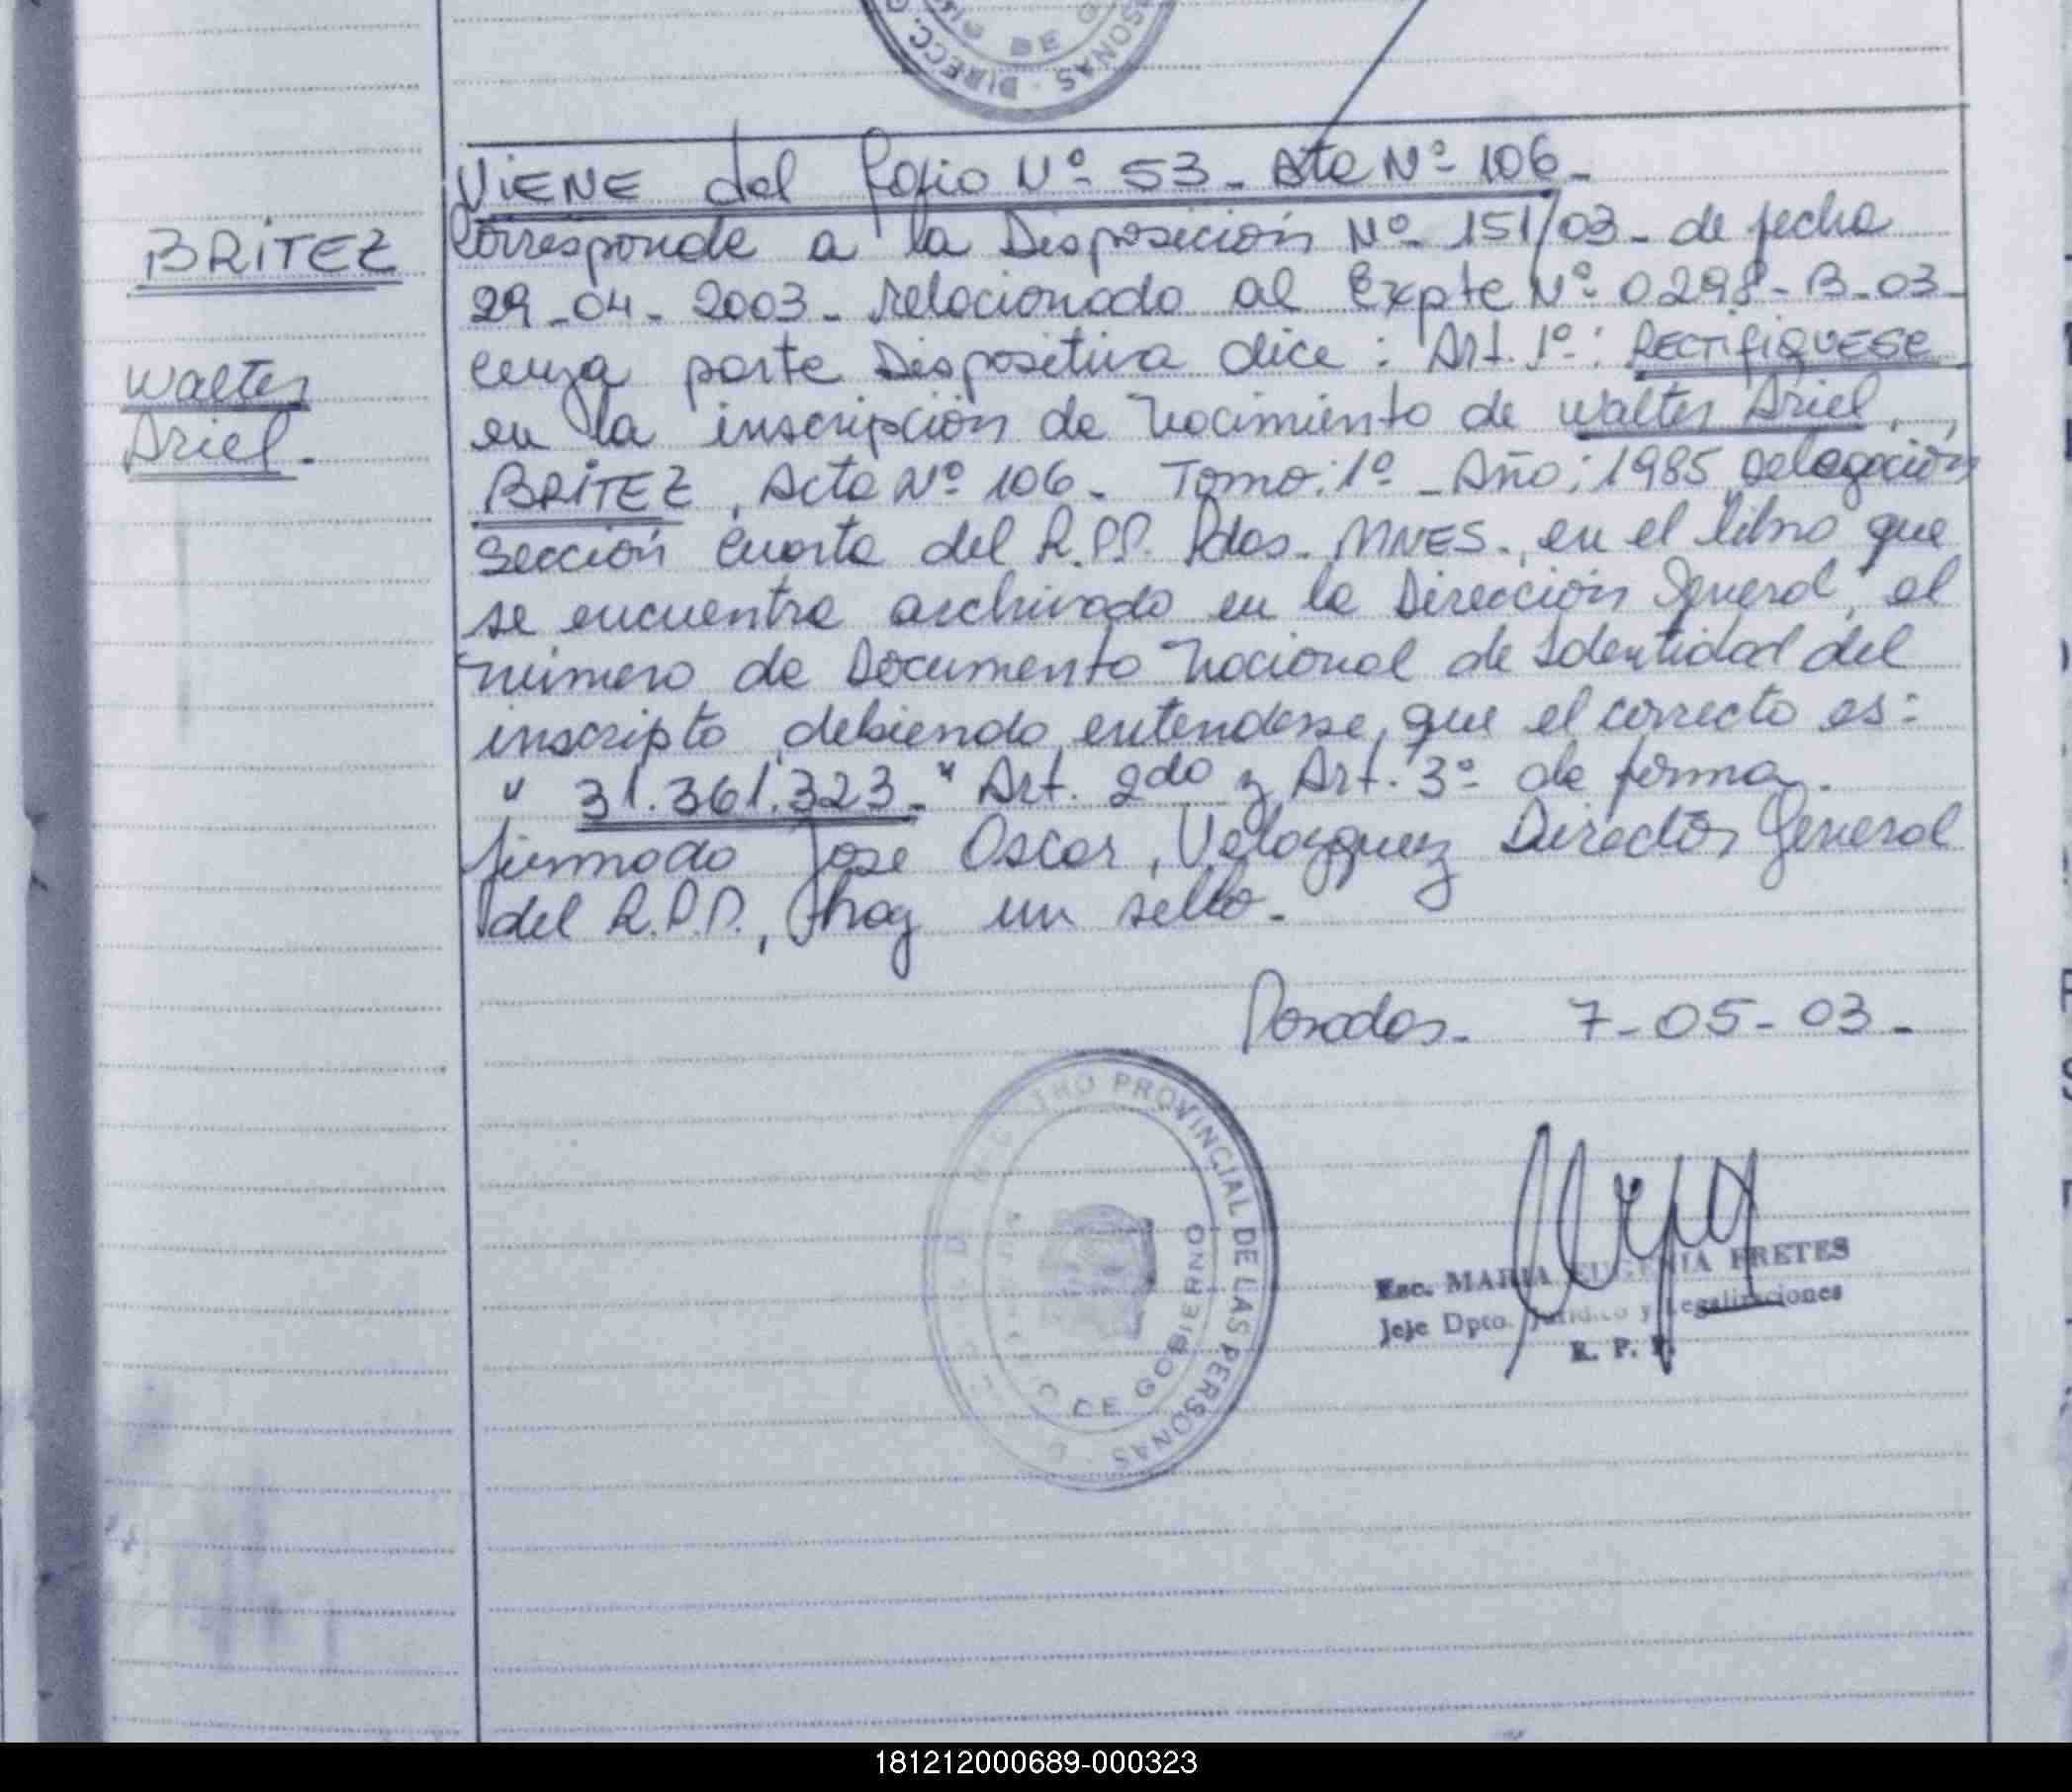 DIRECC. G
SONAS
DE
VIENE del folio Nº 53 - Acta Nº 106 -
BRITEZ
Walter
Ariel -
Corresponde a la Disposición Nº 151/03 - de fecha
29-04-2003 - relacionado al Expte Nº 0298-B-03 -
cuya parte Dispositiva dice: Art. 1º: RECTIFIQUESE
en la inscripción de nacimiento de Walter Ariel,
BRITEZ, Acta Nº 106 - Tomo: 1º - Año: 1985, Delegación
Sección Cuarta del R.P.P. Pdas. MNES., en el libro que
se encuentra archivado en la Dirección General, el
número de Documento Nacional de Identidad del
inscripto, debiendo entenderse, que el correcto es:
" 31.361.323 - " Art. 2do y Art. 3º de forma.
firmado Jose Oscar, Velazquez Director General
del R.P.P., hay un sello -
Posadas - 7-05-03 -
PROVINCIAL DE LAS PERSONAS
DE GOBIERNO
Esc. MARIA EUGENIA FRETES
Jefe Dpto. Jurídico y Legalizaciones
R. P. P.
181212000689-000323